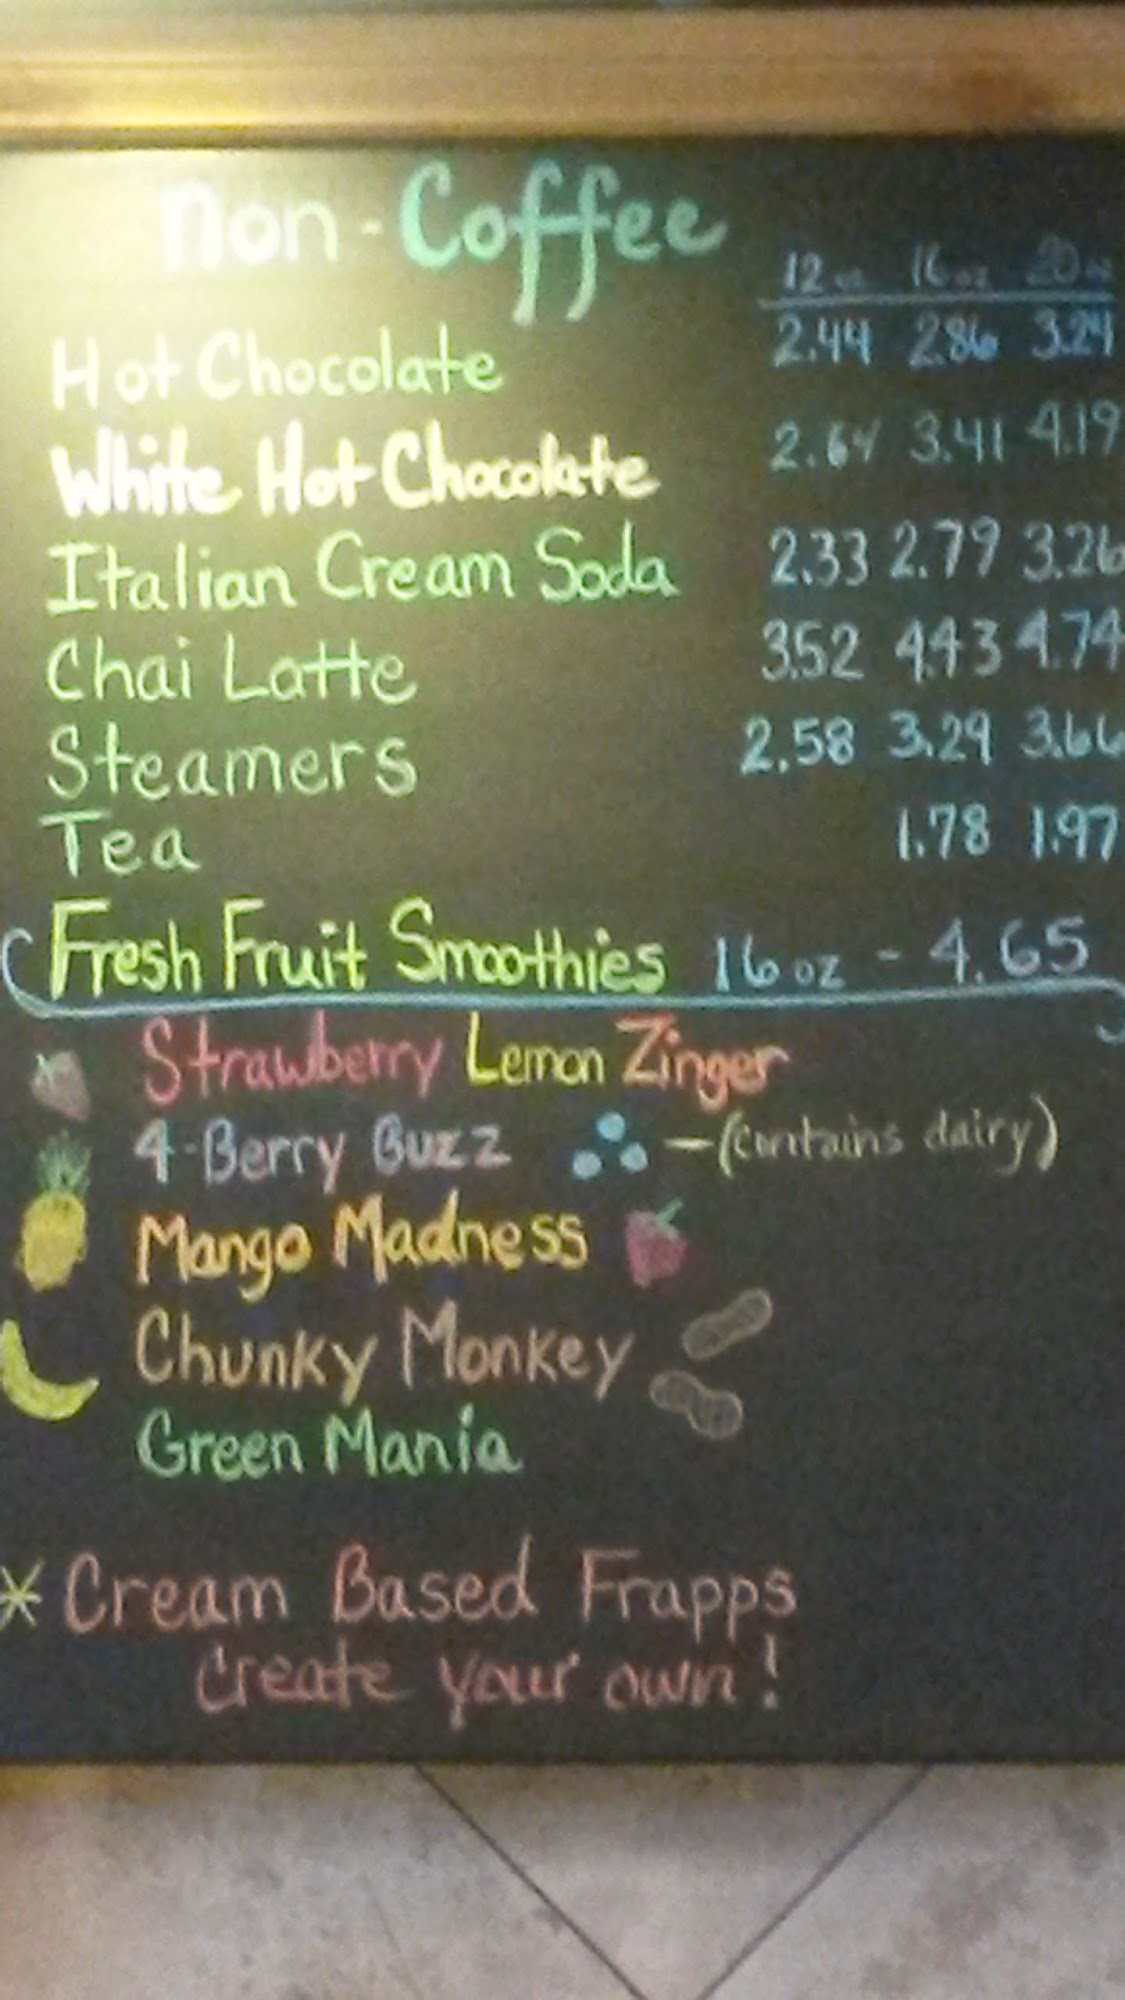 non-Coffee
12 oz 16 oz 20 oz
Hot Chocolate 2.44 2.86 3.29
White Hot Chocolate 2.64 3.41 4.19
Italian Cream Soda 2.33 2.79 3.26
Chai Latte 3.52 4.43 4.74
Steamers 2.58 3.29 3.66
Tea 1.78 1.97
Fresh Fruit Smoothies 16 oz - 4.65
Strawberry Lemon Zinger
4-Berry Buzz - (contains dairy)
Mango Madness
Chunky Monkey
Green Mania
* Cream Based Frapps
Create your own!